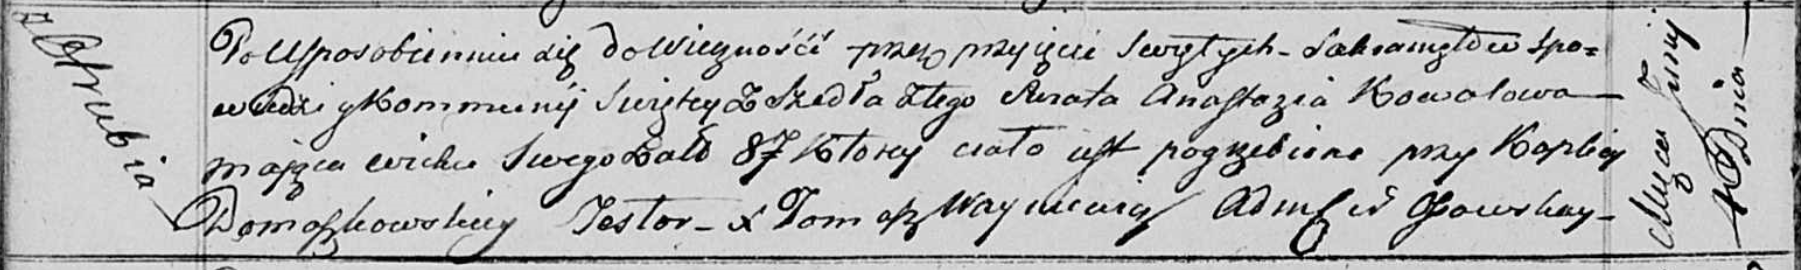 Po Usposobienniu się do Wieczności przez przyięcie Swiętych Sakramętow Spo=
wiedzi y Kommunij Swiętey Zeszedła z tego Swiata Anastazia Kowalowa
mająca wieku Swego Lat 87 Ktorey ciało iest pogrzebione przy Kaplicy
Domaszkowskiey Testor - X Tomasz Woyniewicz Adm
Mca Junij
4 Dnia